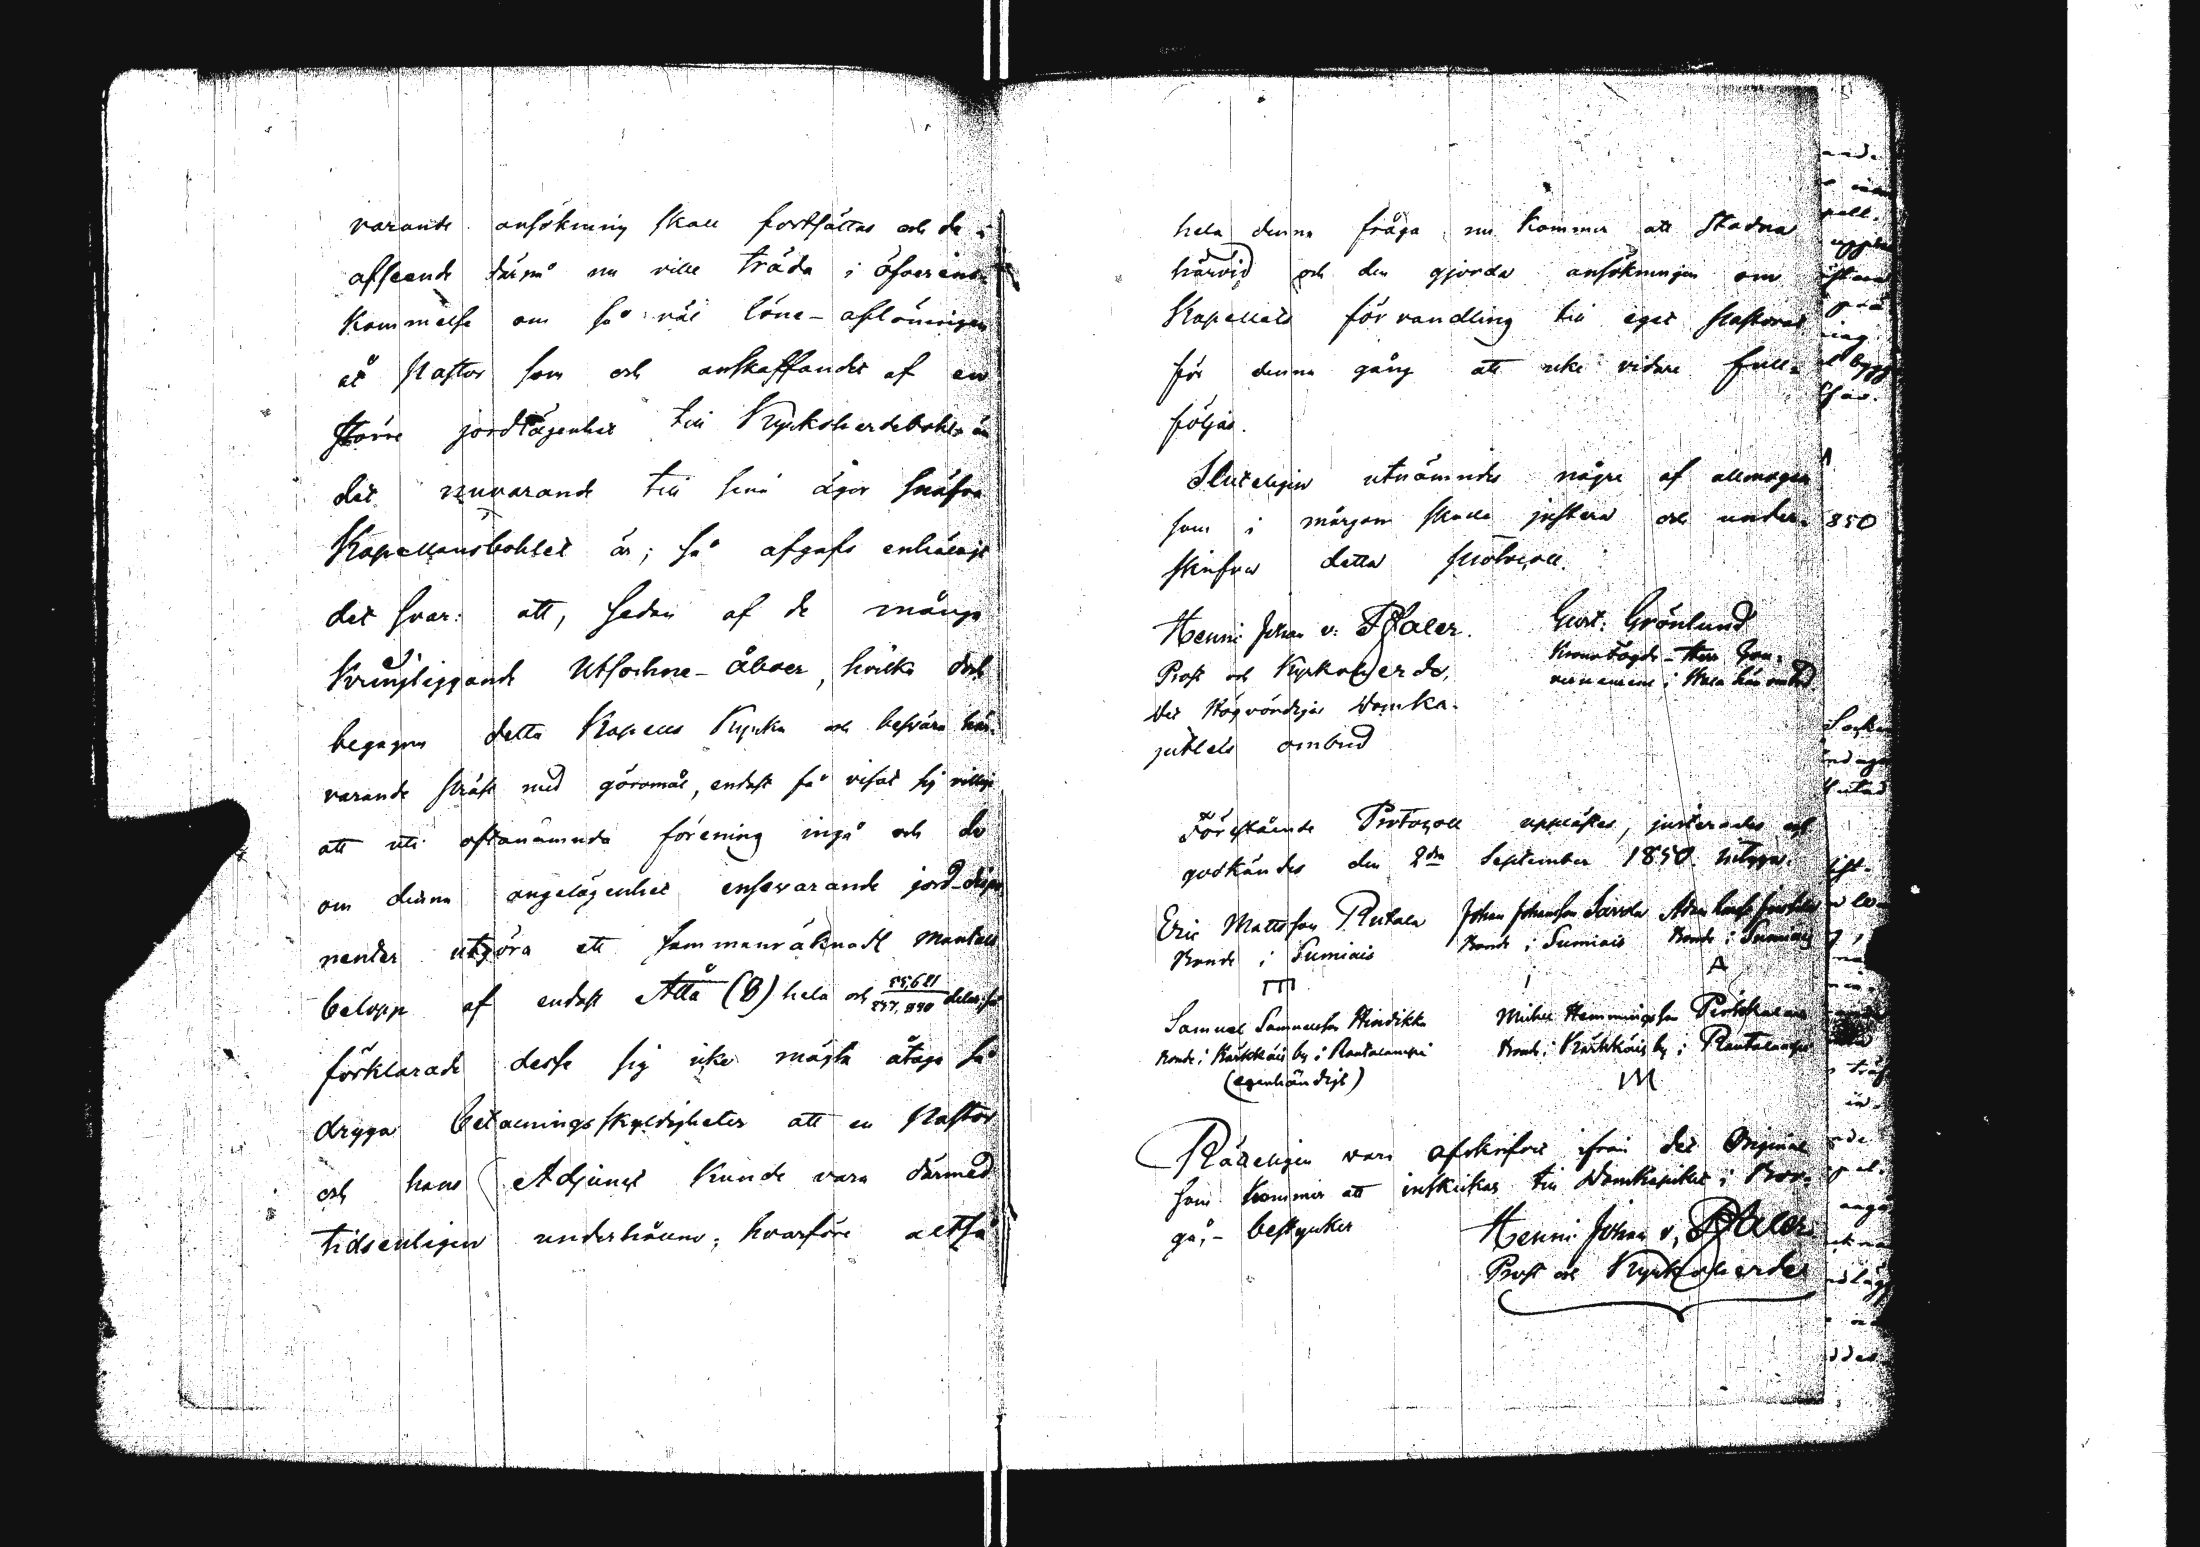 varande ansökning skall fortsättas och de i
afseende därpå nu ville träda i öfverens-
kommelse om så väl löne-aflöningen
åt Pastor som och anskaffandet af en
större jordlägenhet till Kyrkoherdebohl, än
det nuvarande till sina ägor snäfva
Kapellansbohlet är; så afgafs enhälligt
det svar: att, sedan af de många
kringliggande Utsockne-Åboer, hvilka dock
begagna detta Kapells Kyrka och besvära här-
varande Präst med göromål, endast få visat sig villige
att uti oftanämnda förening ingå och de
om denna angelägenhet ensvarande jord-dispo
nenter utgöra ett sammanräknadt mantals
belopp af endast Åtta (8) hela och delar; så
förklarade desse sig icke mägta åtaga så
dryga betalningsskyldigheter att en Pastor
och hans Adjunct kunde vara därmed
tidsenligen underhållne; hvarföre altså
hela denna fråga nu kommer att stadna
härvid och den gjorda ansökningen om
Kapellets förvandling till eget Pastorat
för denna gång att icke vidare full-
följas.
Sluteligen utnämndes några af allmogen
som i morgon skulle justera och under-
skrifva detta Protocoll.
Henric Johan v. Pfaler. Gust. Grönlund
Prost och Kyrkoherde, Kronofogde - Herr Gou-
Det Högvördiga Domka- verneurens i Wasa län ombud.
pitlets ombud
Förestående Protocoll upplästes, justerades och
godkändes den 2dra September 1850.
Eric Mattsson Rutala Johan Johansson Savola
Bonde i Sumiais Bonde i Sumiais Bonde i Sumiais
Samuel Samuelsson Hindikka Michel Hemmingsson
Bonde i Kärkkäis by i Rautalampi Bonde i Kärkkäis by i Rautalampi
(egenhändigt) M
Rätteligen vara afskrifvet ifrån det Original
som kommer att inskickas till Domkapitlet i Bor-
gå, - bestyrker Henric Johan v. Pfaler
Prost och Kyrkoherde
850